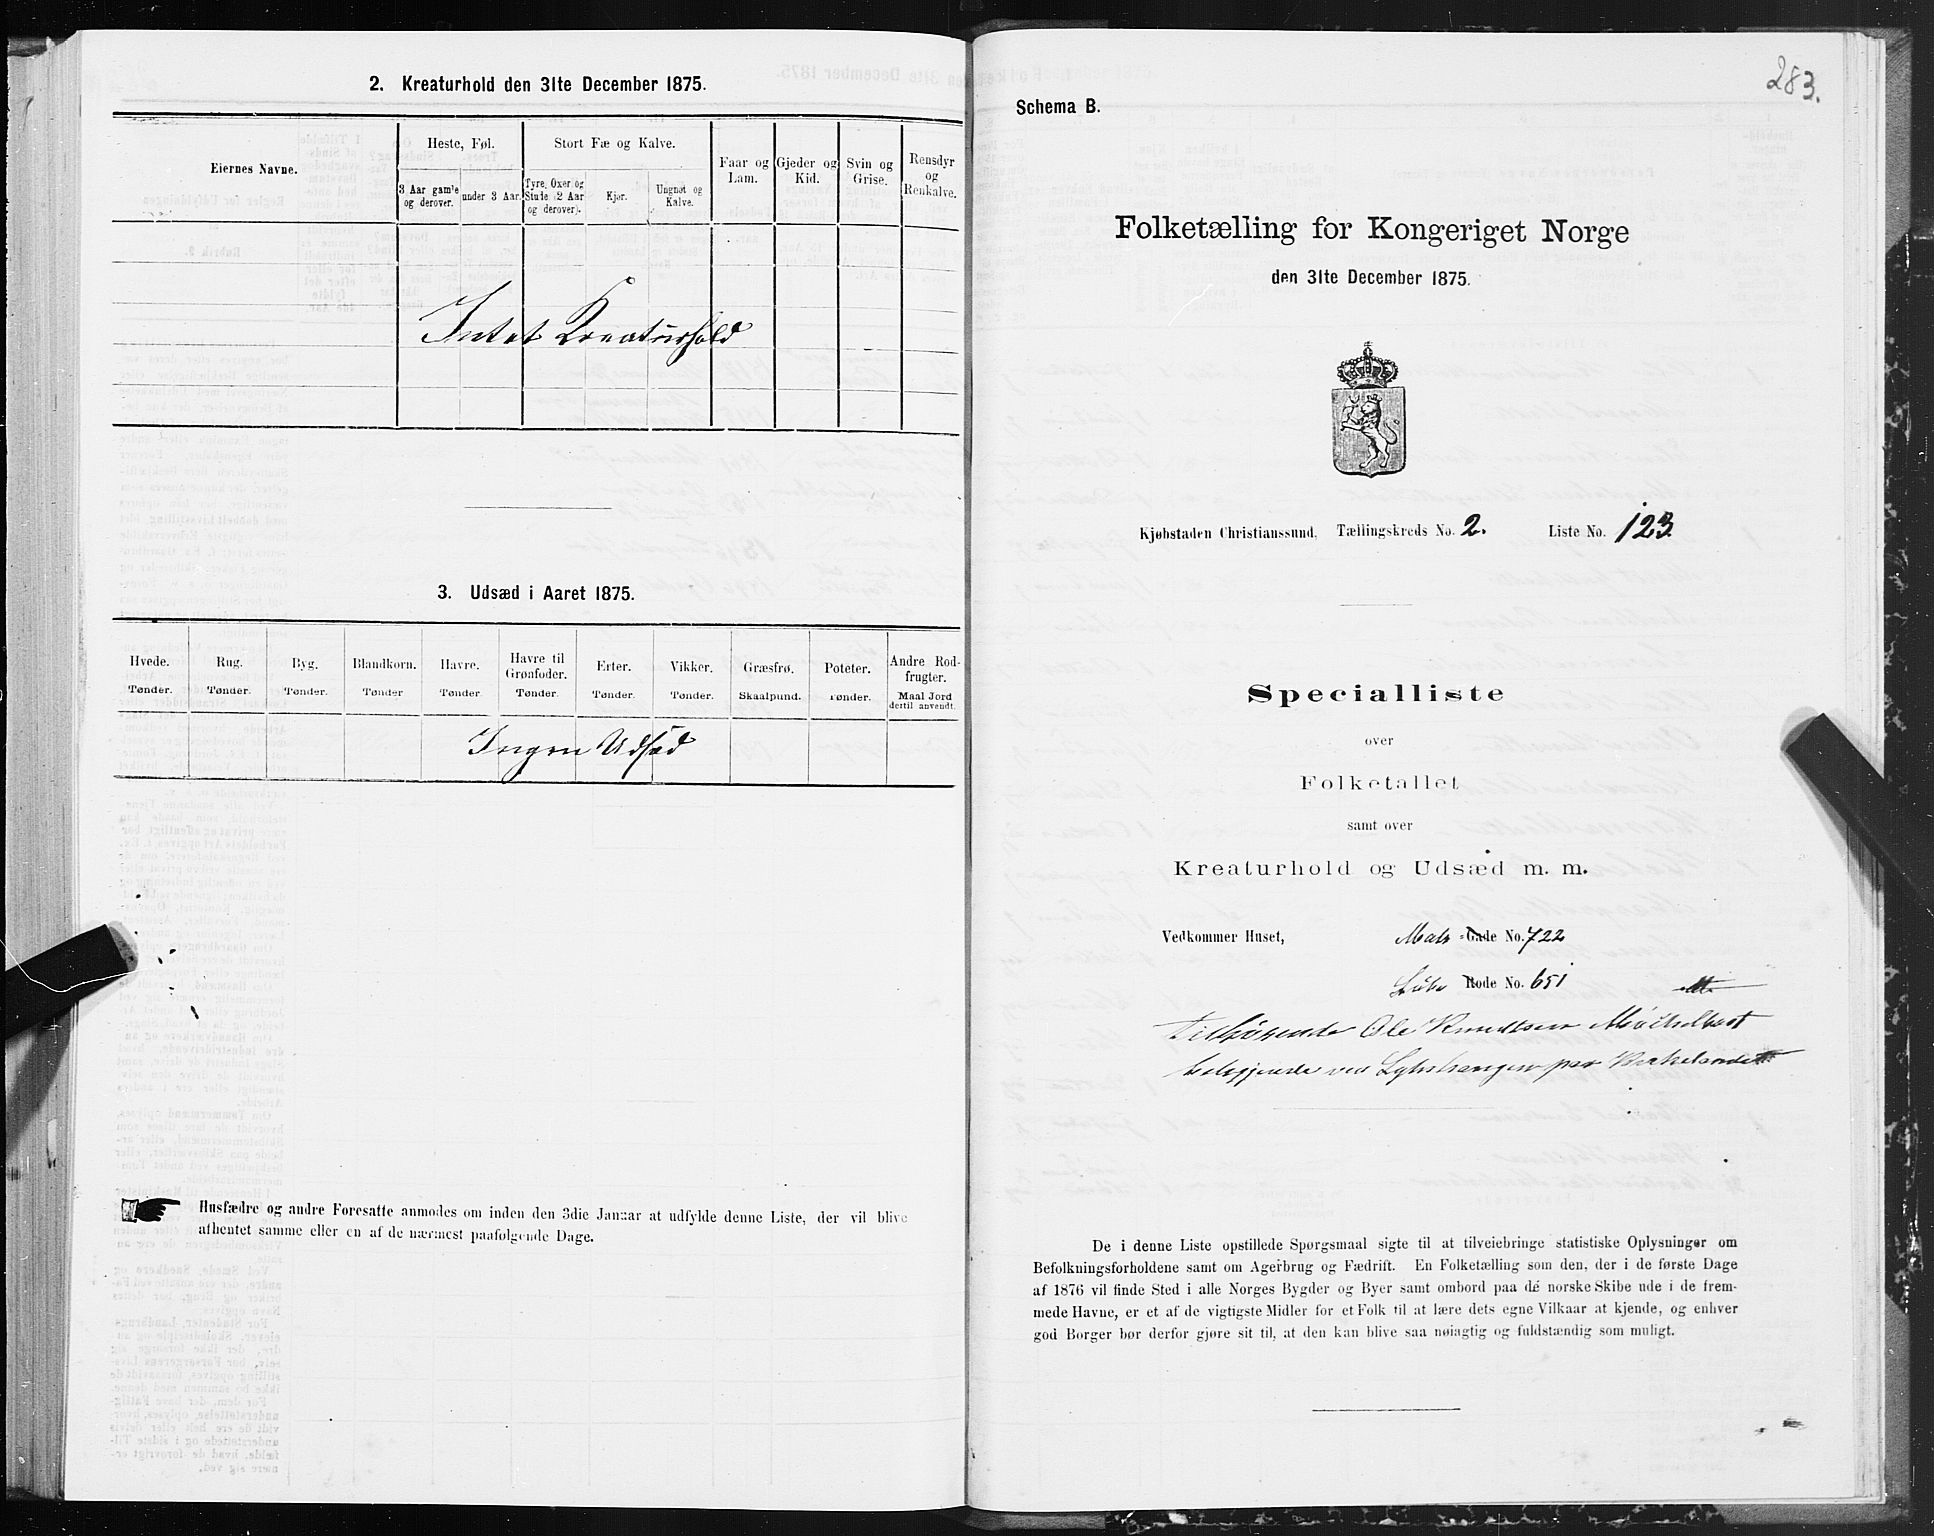 2. Kreaturhold den 31te December 1875.
Eiernes Navne.
Heste, Føl.
Stort Fæ og Kalve.
Faar og Lam.
Gjeder og Kid.
Svin og Grise.
Rensdyr og Renkalve.
3 Aar gam'e og derover.
under 3 Aar.
Tyre, Oxer og Stude (2 Aar og derover).
Kjør.
Ungnøt og Kalve.
Intet Kreaturhold
3. Udsæd i Aaret 1875.
Hvede.
Rug.
Byg.
Blandkorn.
Havre.
Havre til Grønfoder.
Erter.
Vikker.
Græsfrø.
Poteter.
Andre Rodfrugter.
Tønder.
Tønder.
Tønder.
Tønder
Tønder.
Tønder.
Tønder.
Tønder.
Skaalpund.
Tønder.
Maal Jord dertil anvendt.
Ingen Udsæd
Husfædre og andre Foresatte anmodes om inden den 3die Januar at udfylde denne Liste, der vil blive
afhentet samme eller en af de nærmest paafølgende Dage.
283.
Schema B.
Folketælling for Kongeriget Norge
den 31te December 1875.
Kjøbstaden Christianssund, Tællingskreds No. 2. Liste No. 123
Specialliste
over
Folketallet
samt over
Kreaturhold og Udsæd m. m.
Vedkommer Huset, Matr Gade No. 722
Rode No. 651
Tilhørende Ole Knudtsen
paa Kirkelandet
De i denne Liste opstillede Spørgsmaal sigte til at tilveiebringe statistiske Oplysninger om
Befolkningsforholdene samt om Agerbrug og Fædrift. En Folketælling som den, der i de første Dage
af 1876 vil finde Sted i alle Norges Bygder og Byer samt ombord paa de norske Skibe ude i de frem-
mede Havne, er et af de vigtigste Midler for et Folk til at lære dets egne Vilkaar at kjende, og enhver
god Borger bør derfor gjøre sit til, at den kan blive saa nøiagtig og fuldstændig som muligt.